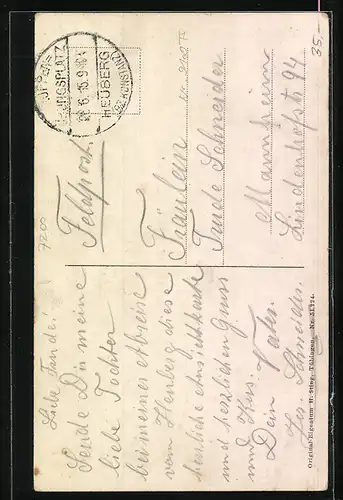 TRUPPEN-
ÜBUNGSPLATZ
6.15.9
HEUBERG
(BZ. KONSTANZ)
Feldpost.
Fräulein
Trude Schneider
Mannheim
Lindenhofstr 94
35.-
Liebe Trude!
Sende Dir meine
liebe Tochter
bei meiner Abreise
vom Heuberg diese
herzliche Ansichtkarte
und herzlichen Gruss
und Kuss.
Dein Vater.
Schneider.
Original-Eigentum H. Sting, Tübingen. Nr.